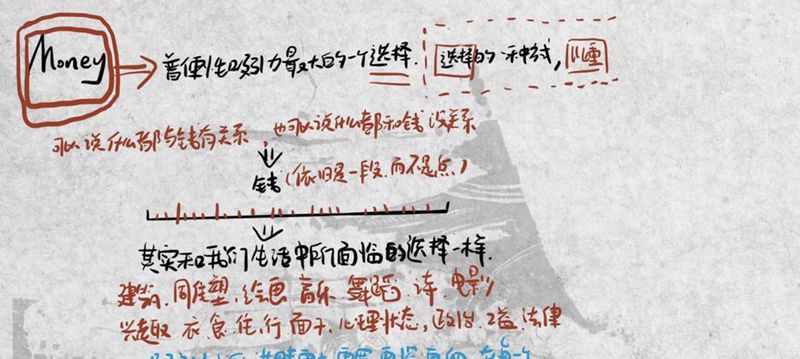 Money → 普便性吸引力最大的一个选择. 选择的一种方式, 心理
可以说什么都与钱有关系, 也可以说什么都和钱没关系
钱 (依旧是一段, 而不是点)
其实和我们生活中所面临的选择一样.
建筑, 雕塑, 绘画 音乐 舞蹈, 诗, 电影
兴趣 衣, 食, 住, 行 面子, 心理状态, 政治, 工益, 法律